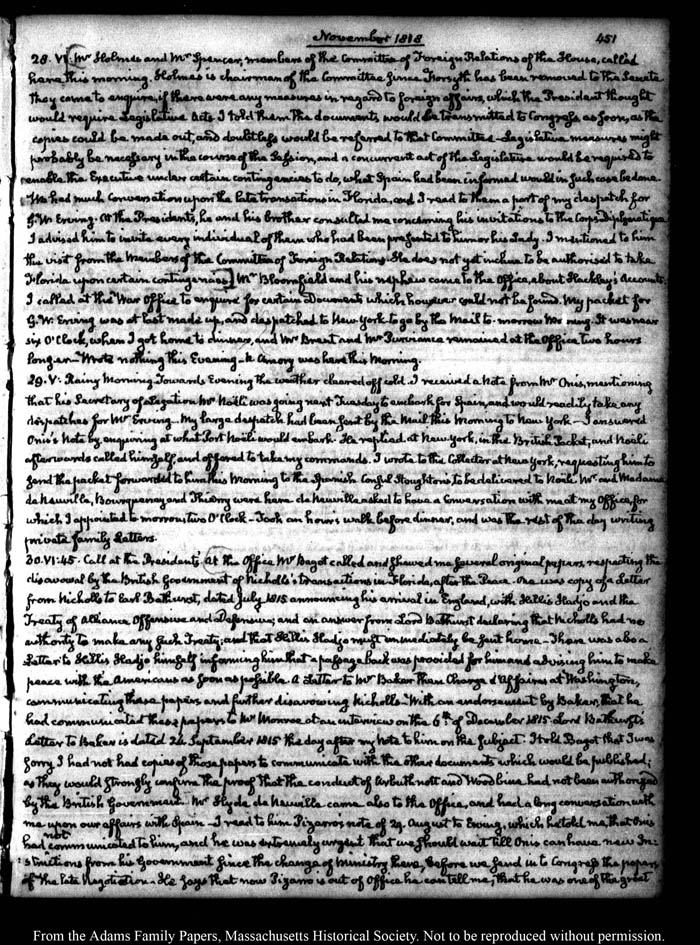 November 1818 451
28. VI. Mr Holmes and Mr Spencer, members of the Committee of Foreign Relations of the House, called
here this morning. Holmes is chairman of the Committee since Forsyth has been removed to the Senate
They came to enquire, if there were any measures in regard to foreign affairs, which the President thought
would require Legislative Acts. I told them the documents would be transmitted to Congress as soon, as the
copies could be made out, and doubtless would be referred to that Committee. Legislative measures might
probably be necessary in the course of the Session, and a concurrent act of the Legislature would be required to
enable the Executive under certain contingencies to do, what Spain had been informed would in such case be done.
We had much Conversation upon the late transactions in Florida, and I read to them a part of my despatch for
G. W. Erving. At the Presidents, he and his brother consulted me concerning his invitations to the Corps Diplomatique
I advised him to invite every individual of them who had been presented to him or his Lady. I mentioned to him
the visit from the Members of the Committee of Foreign Relations. He does not yet incline to be authorised to take
Florida upon certain contingencies] Mr Bloomfield and his nephew came to the Office, about Hackley's Accounts.
I called at the War Office to enquire for certain Documents which however could not be found. My packet for
G. W. Erving was at last made up, and despatched to New York to go by the Mail to-morrow Morning. It was near
six O'Clock, when I got home to dinner, and Mr Brent and Mr Purviance remained at the Office two hours
longer— Wrote nothing this Evening— Amory was here this Morning.
29. V: Rainy Morning. Towards Evening the weather cleared off cold. I received a Note from Mr Onis, mentioning
that his Secretary of Legation Mr Noeli was going next Tuesday to embark for Spain, and would readily take any
despatches for Mr Erving— My large despatch had been sent by the Mail this Morning to New York— I answered
Onis's Note by enquiring at what Port Noeli would embark. He replied, at New York, in the British Packet; and Noeli
afterwards called himself, and offered to take my commands. I wrote to the Collector at New York, requesting him to
send the packet forwarded to him this Morning to the Spanish Consul Stoughton's to be delivered to Noeli. Mr and Madame
de Neuville, Bourqueney and Thierry were here. de Neuville asked to have a Conversation with me at my Office, for
which I appointed to morrow, two O'Clock— Took an hour's walk before dinner, and was the rest of the day writing
private family Letters.
30. VI:45. Call at the Presidents. At the Office Mr Bagot called and shewed me several original papers, respecting the
disavowal by the British Government of Nicholls's transactions in Florida, after the Peace. One was copy of a Letter
from Nicholls to Earl Bathurst, dated July 1815 announcing his arrival in England, with Hillis Hadjo and the
Treaty of Alliance, Offensive and Defensive; and an answer from Lord Bathurst declaring that Nicholls had no
authority to make any such Treaty; and that Hillis Hadjo must immediately be sent home— There was also a
Letter to Hillis Hadjo himself informing him that a passage back was provided for him and advising him to make
peace with the Americans as soon as possible. A Letter to Mr Baker then Chargé d'Affaires at Washington,
communicating these papers and further disavowing Nicholls— With an endorsement by Baker, that he
had communicated these papers to Mr Monroe at an interview on the 6th of December 1815. Lord Bathurst's
Letter to Baker is dated 24 September 1815 the day after my Note to him on the subject. I told Bagot that I was
sorry I had not had copies of those papers to communicate with the other documents which would be published;
as they would strongly confirm the proof that the conduct of Arbuthnott and Woodbine had not been authorized
by the British Government. Mr Hyde de Neuville came also to the Office, and had a long conversation with
me upon our affairs with Spain— I read to him Pizarro's note of 29. August to Erving, which he told me, that Onis
had not communicated to him, and he was extremely urgent that we should wait till Onis can have new In-
structions from his Government since the change of Ministry there, before we send in to Congress the papers
of the late Negotiation— He says that now Pizarro is out of Office he can tell me, that he was one of the great
From the Adams Family Papers, Massachusetts Historical Society. Not to be reproduced without permission.